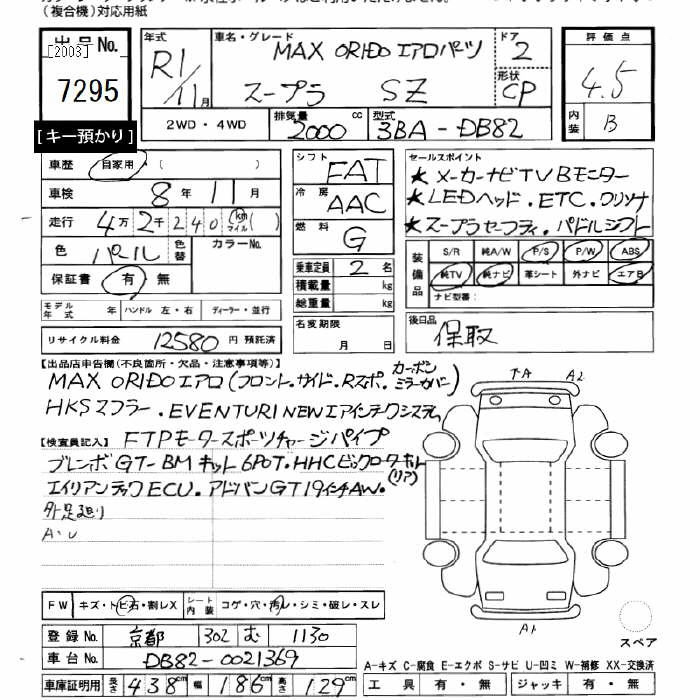 (複合機)対応用紙
出品No.
[2003]
7295
[キー預かり]
年式
R1/11月
車名・グレード
MAX ORIDO エアロパーツ
スープラ SZ
ドア
2
形状
CP
評価点
4.5
内装 B
2WD・4WD
排気量 2000 cc
型式 3BA-DB82
車歴 自家用 ( )
車検 8年 11月
走行 4万2千240 km マイル ( )
色 パール 色替 カラーNo.
保証書 有・無
モデル年式 年 ハンドル 左・右 ディーラー・並行
リサイクル料金 12580 円 預託済
シフト FAT
冷房 AAC
燃料 G
乗車定員 2 名
積載量 kg
総重量 kg
名変期限
月 日
セールスポイント
★メーカーナビTVBモニター
★LEDヘッド.ETC.クリソナ
★スープラセーフティ.パドルシフト
装備品
S/R 純A/W P/S P/W ABS
純TV 純ナビ 革シート 外ナビ エアB
ナビ型番:
後日品
保取
【出品店申告欄(不良箇所・欠品・注意事項等)】
MAX ORIDOエアロ(フロント.サイド.Rスポ.カーボンミラーカバー)
HKSマフラー.EVENTURI NEWエアインテークシステム
【検査員記入】 FTPモータースポーツチャージパイプ
ブレンボGT-BMキット6POT.HHCビックローターキット(リア)
エイリアンテックECU.アドバンGT19インチAW.
外足廻り
A.U
TA A2
A1
スペア
FW キズ・トビ石・割レX シート内装 コゲ・穴・汚レ・シミ・破レ・スレ
登録No. 京都 302 む 1130
車台No. DB82-0021369
車庫証明用 長さ 438 cm 幅 186 cm 高さ 129 cm
A-キズ C-腐食 E-エクボ S-サビ U-凹ミ W-補修 XX-交換済
工具 有・無 ジャッキ 有・無